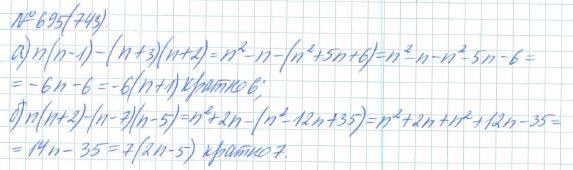 №695(743).
а) n(n-1)-(n+3)(n+2)=n²-n-(n²+5n+6)=n²-n-n²-5n-6=
=-6n-6=-6(n+1) кратно 6;
б) n(n+2)-(n-7)(n-5)=n²+2n-(n²-12n+35)=n²+2n+n²+12n-35=
=14n-35=7(2n-5) кратно 7.